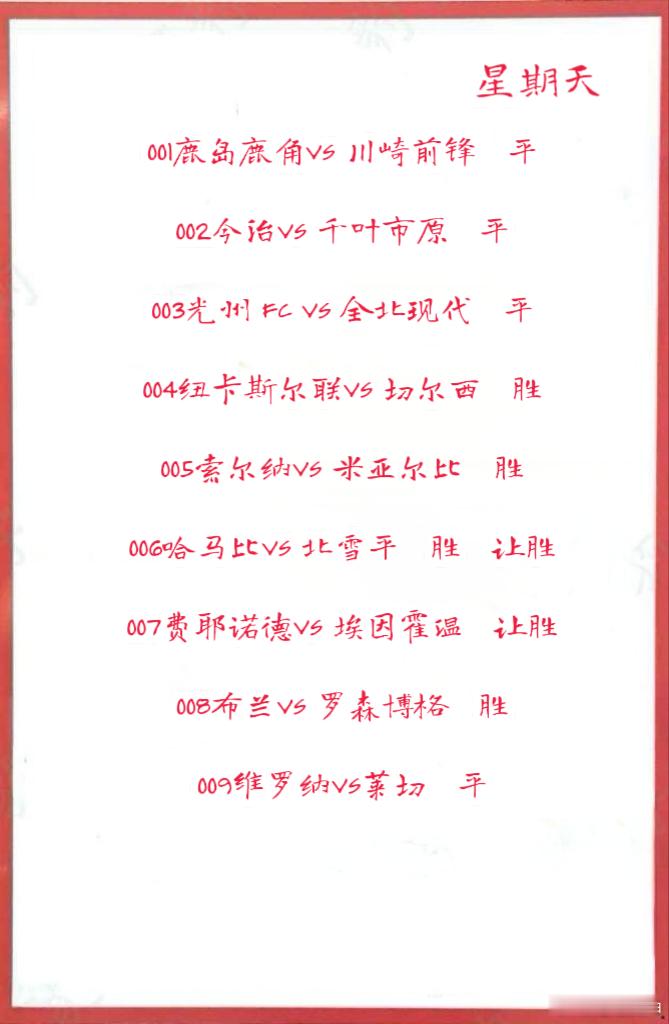 星期天
001鹿岛鹿角VS 川崎前锋 平
002今治VS 千叶市原 平
003光州 FC VS 全北现代 平
004纽卡斯尔联VS 切尔西 胜
005索尔纳VS 米亚尔比 胜
006哈马比VS 北雪平 胜 让胜
007费耶诺德VS 埃因霍温 让胜
008布兰VS 罗森博格 胜
009维罗纳VS莱切 平